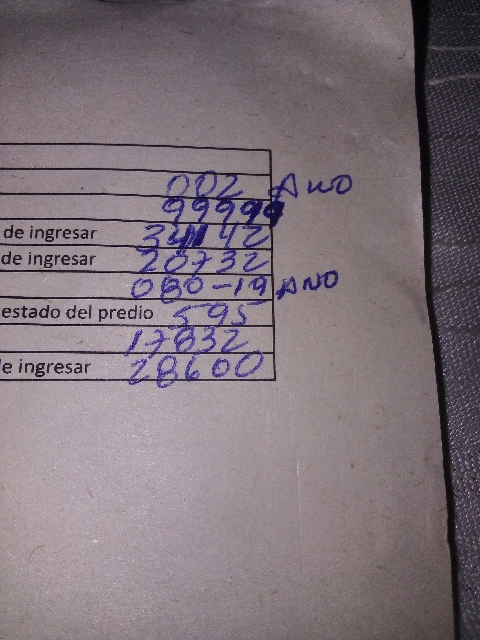 002 ANO
99999
de ingresar 34142
de ingresar 20732
080-19 ANO
estado del predio 595
17832
de ingresar 28600